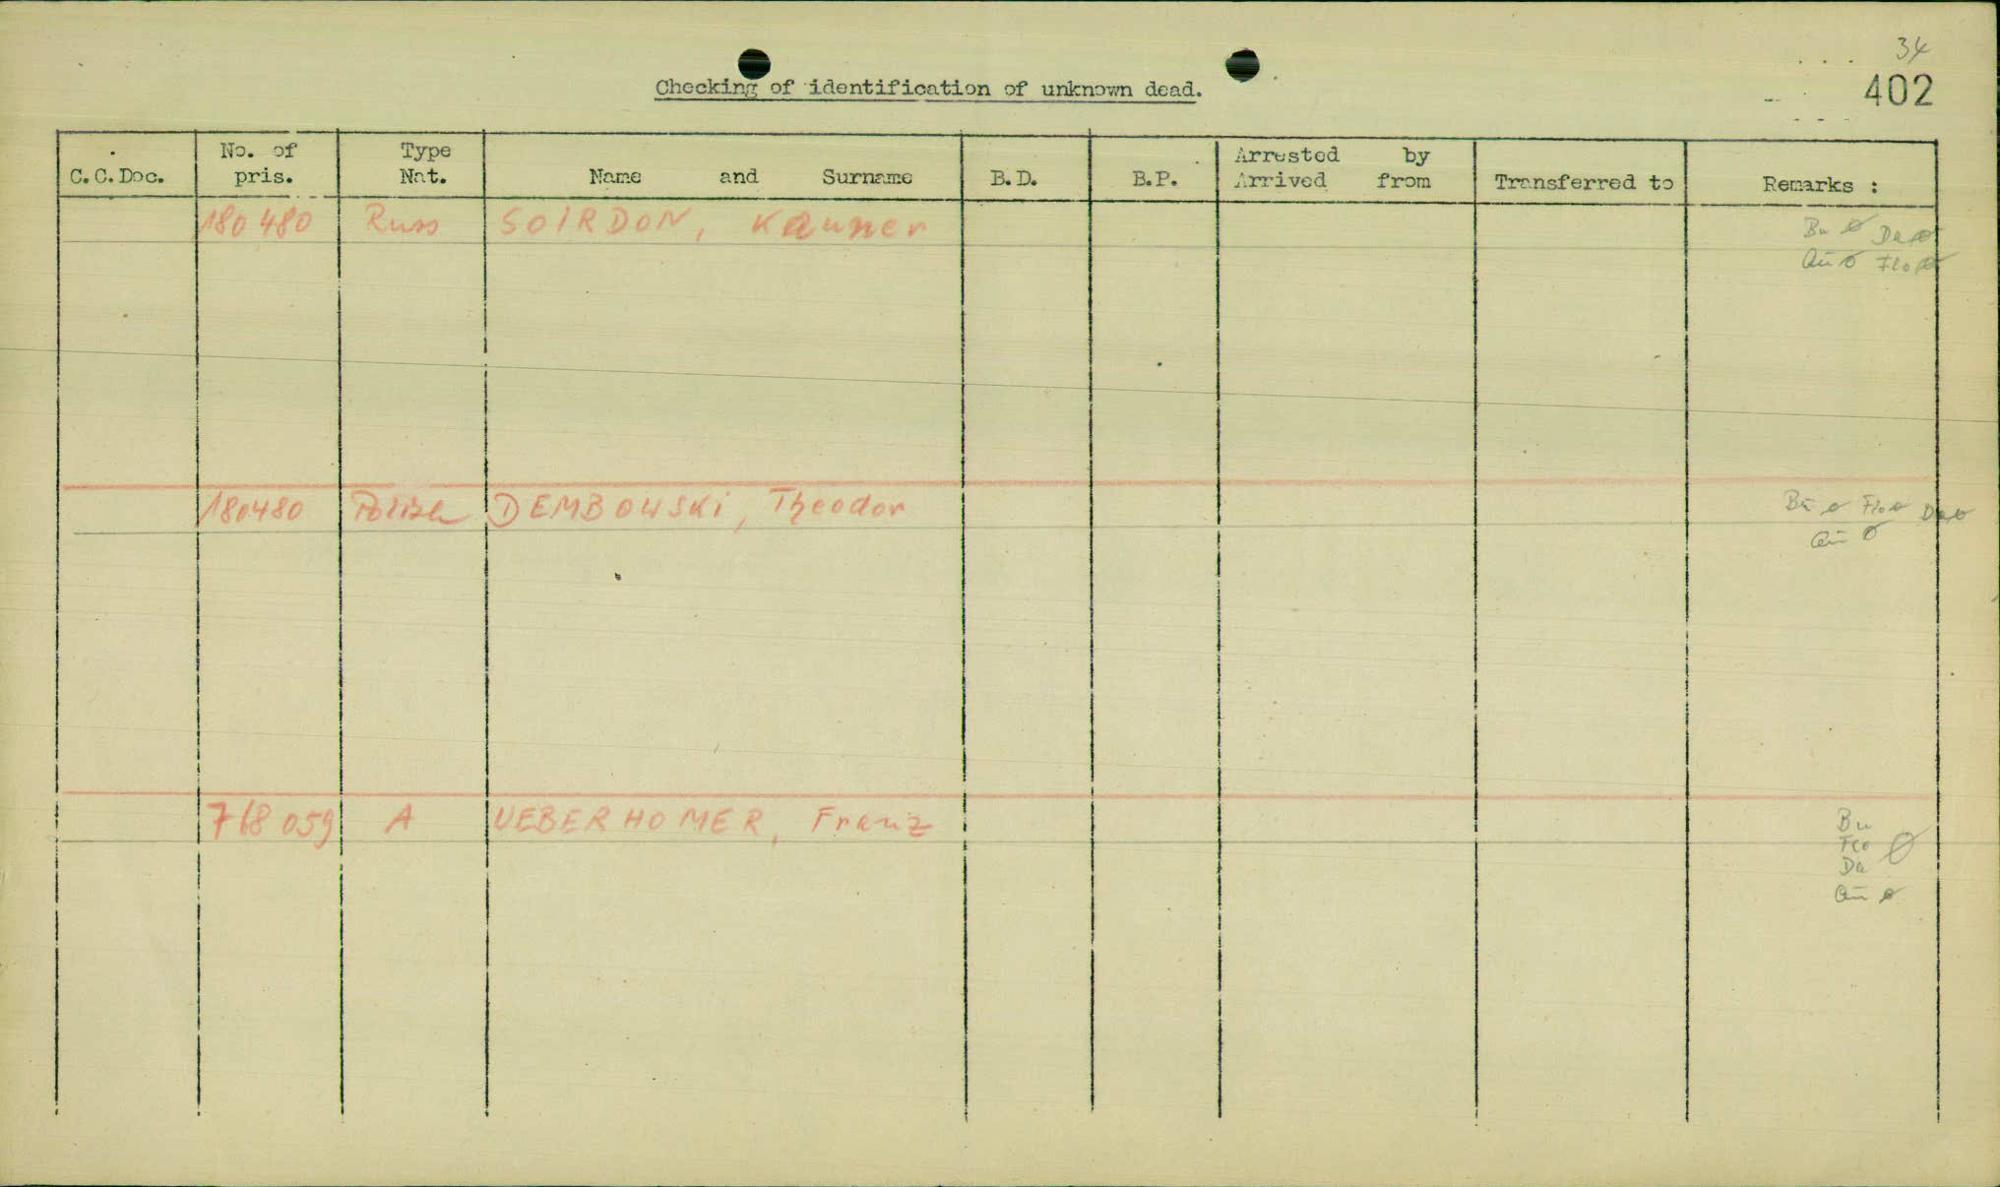 34
402
Checking of identification of unknown dead.
C.C.Doc. No. of pris. Type Nat. Name and Surname B.D. B.P. Arrested by Arrived from Transferred to Remarks :
180480 Russ SOIRDON, Kauner Bu ø Da ø
Qu ø Flo ø
180480 DEMBOWSKI, Theodor Bu ø Flo ø Da ø
Qu ø
768059 A UEBERHOMER, Franz Bu
Flo ø
Da
Qu ø